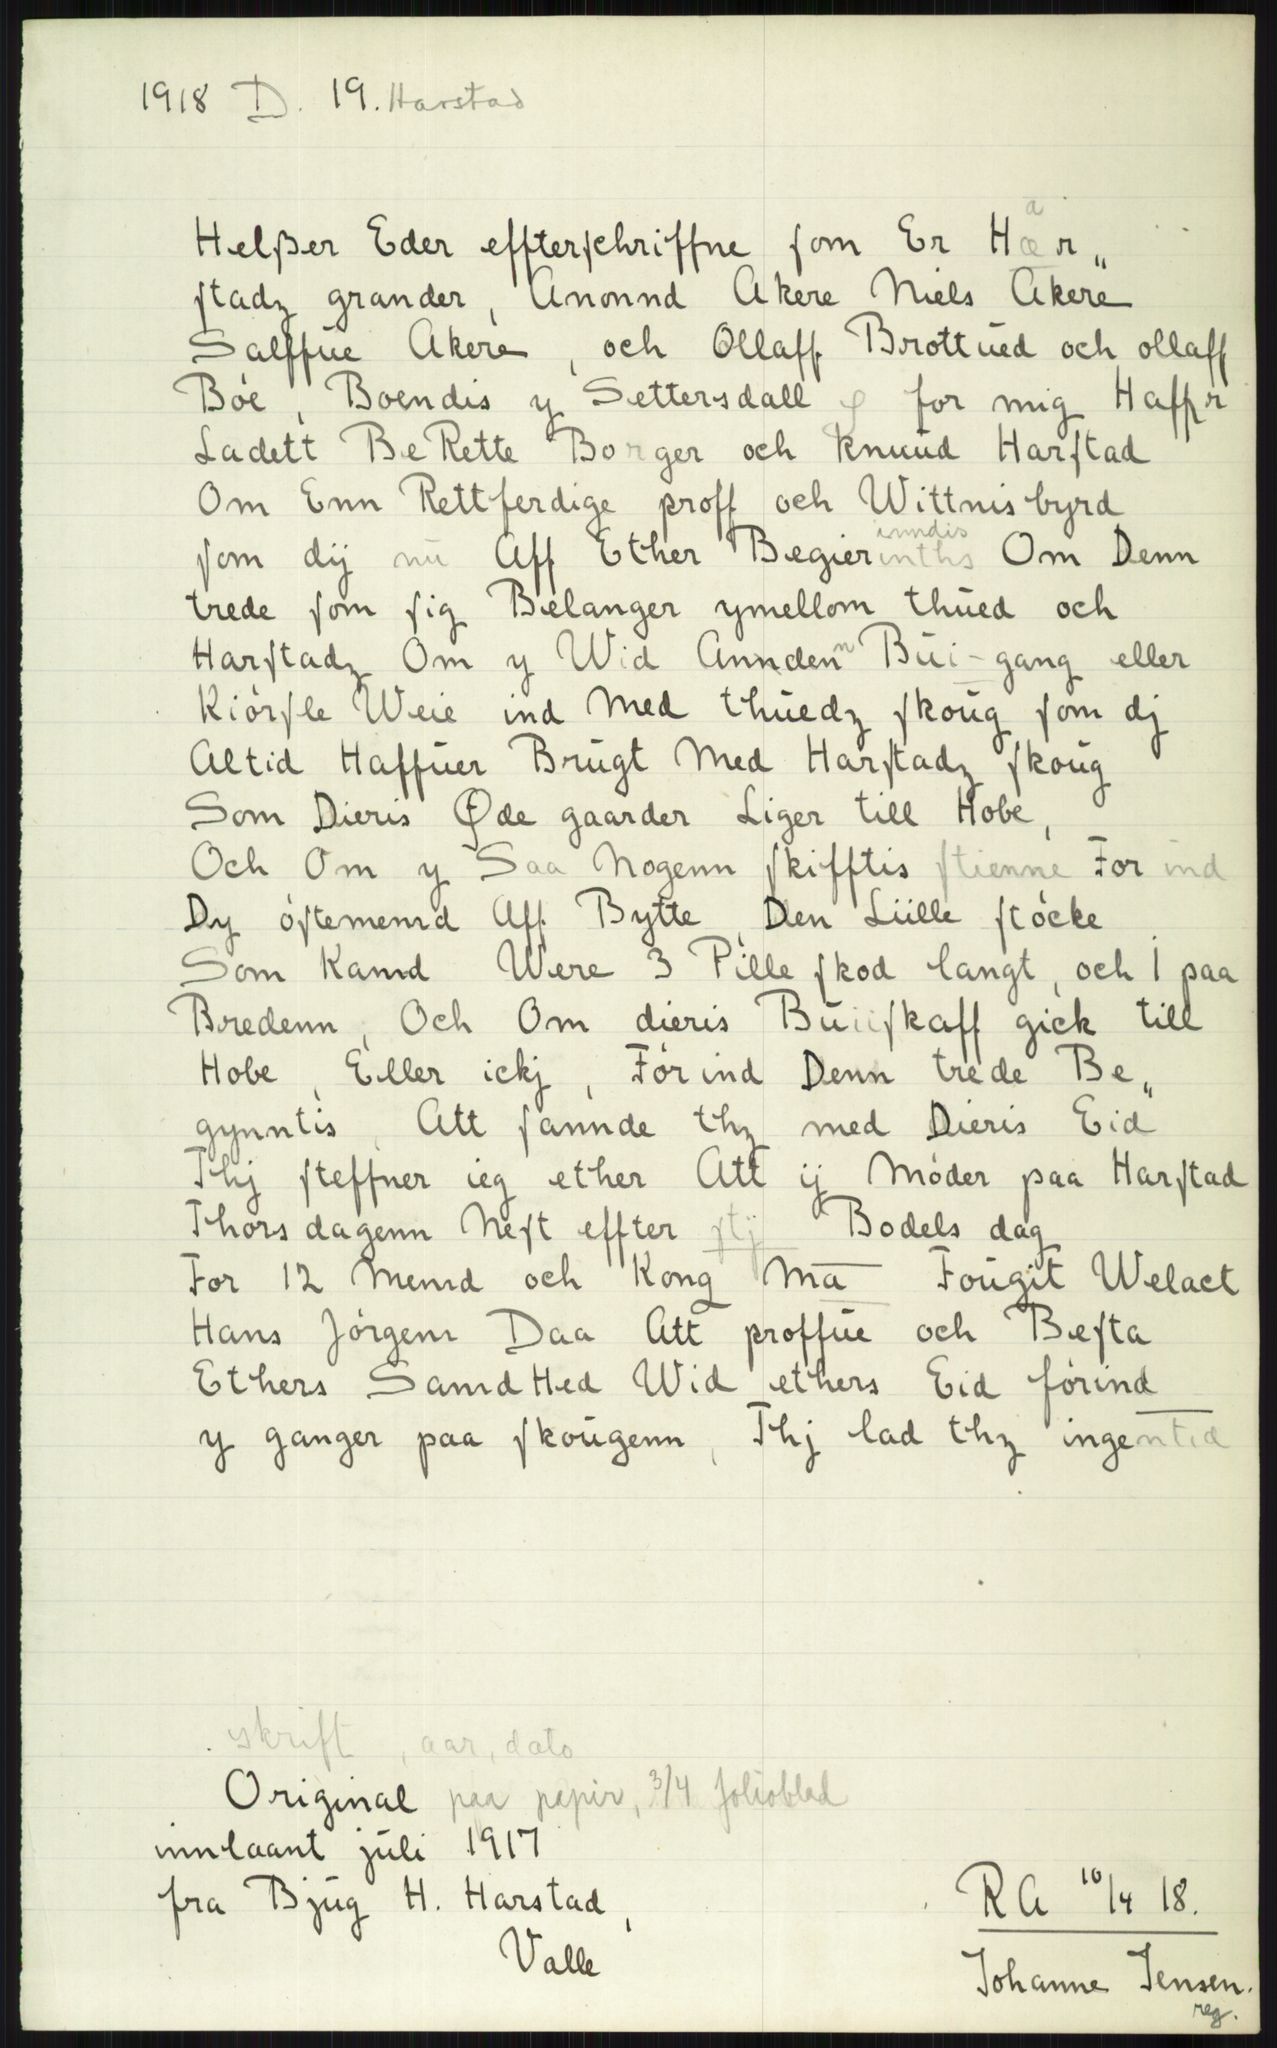 1918 D. 19. Harstad
Helßer Eder effterſchriffne ſom Er Hær„
a
ſtadz grander, Anonnd Akere Niels Akere
Salffŭe Akere, och Ollaff Brottŭed och ollaff
Bóe, Boendis y Settersdall for mig Haffr
Ladett BeRette Borger och Knuud Harſtad
Om Enn Rettferdige proff och Wittnisbyrd
ſom dij nŭ Aff Ether Begierinths Om Denn
inndis
trede ſom ſig Belanger ymellom thŭed och
Harſtadz Om y Wid Anndenn Bŭi-gang eller
Kiórſle Weie ind Med thŭedz ſkoŭg ſom dj
Altid Haffŭer Brŭgt Med Harſtadz ſkoŭg
Som Dieris Øde gaarder Liger till Hobe,
Och Om y Saa Nogenn ſkifftis ſtienne For ind
Dy óſtemennd Aff Bytte, Den Liille ſtócke
Som Kannd Were 3 Pille ſkod langt, och 1 paa
Bredenn, Och Om dieris Bŭiiſkaff gick till
Hobe, Eller ickj, Fór ind Denn trede Be„
gynntis, Att ſannde thz med Dieris Eid
Thj ſteffner ieg ether Att ij Móder paa Harſtad
Thorsdagenn Neſt effter ſtj Bodels dag
For 12 Mennd och Kong Ma Foŭgit Welact
Hans Jórgenn Daa Att proffŭe och Beſta
Ethers SanndHed Wid ethers Eid fórind
y ganger paa ſkoŭgenn, Thj lad thz ingentid
skrift, aar, dato
Original paa papir, 3/4 folioblad
innlaant jŭli 1917
fra Bjŭg H. Harstad,
Valle
RA 10/4 18.
Johanne Jensen.
reg.